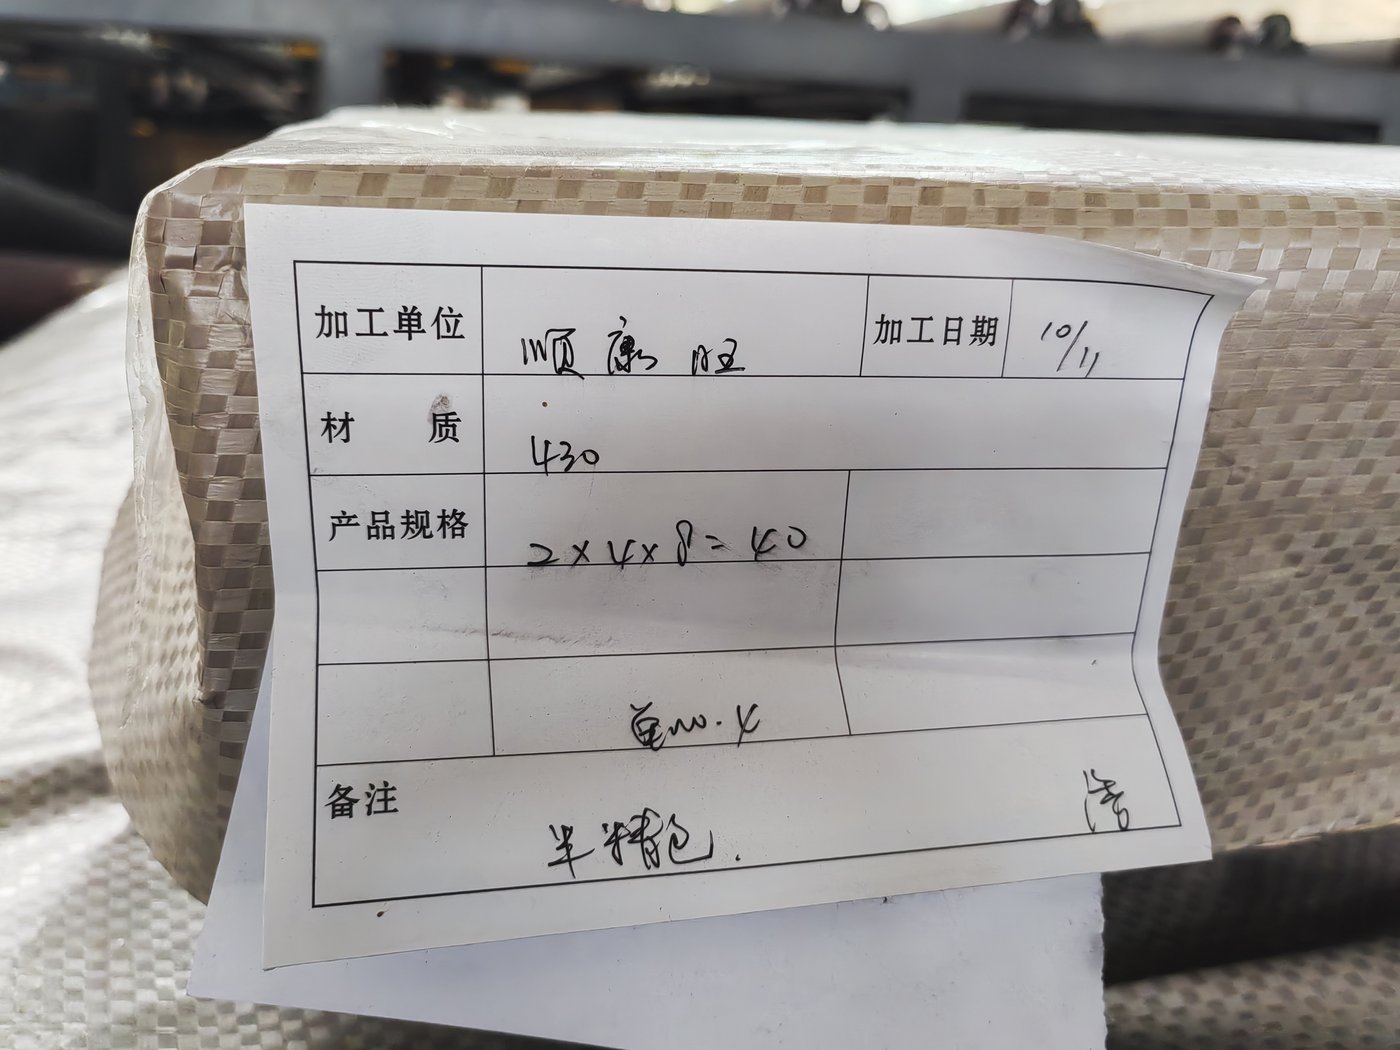 加工单位 顺康旺 加工日期 10/11
材 质 430
产品规格 2×4×8=40
No.4
备注
半精包.
浩